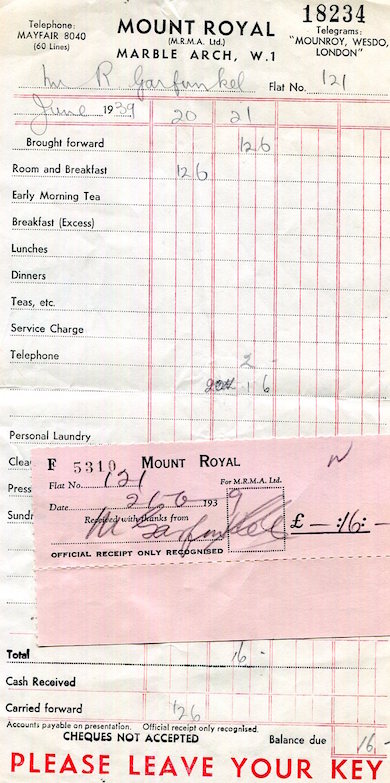 Telephone:
MAYFAIR 8040
(60 Lines)
MOUNT ROYAL
(M.R.M.A. Ltd.)
MARBLE ARCH, W.1
18234
Telegrams:
"MOUNROY, WESDO,
LONDON"
Mr R Garfunkel Flat No. 121
June 1939 20 21
Brought forward 12 6
Room and Breakfast 12 6
Early Morning Tea
Breakfast (Excess)
Lunches
Dinners
Teas, etc.
Service Charge
Telephone 2 -
1 6
Personal Laundry
Clea
Press
Sund
F 5310 MOUNT ROYAL
Flat No. 121 For M.R.M.A. Ltd.
Date 21-6 1939
Received with thanks from
Mr Garfunkel £ - :16: -
OFFICIAL RECEIPT ONLY RECOGNISED
Total 16 -
Cash Received
Carried forward 12 6
Accounts payable on presentation. Official receipt only recognised.
CHEQUES NOT ACCEPTED Balance due 16 -
PLEASE LEAVE YOUR KEY